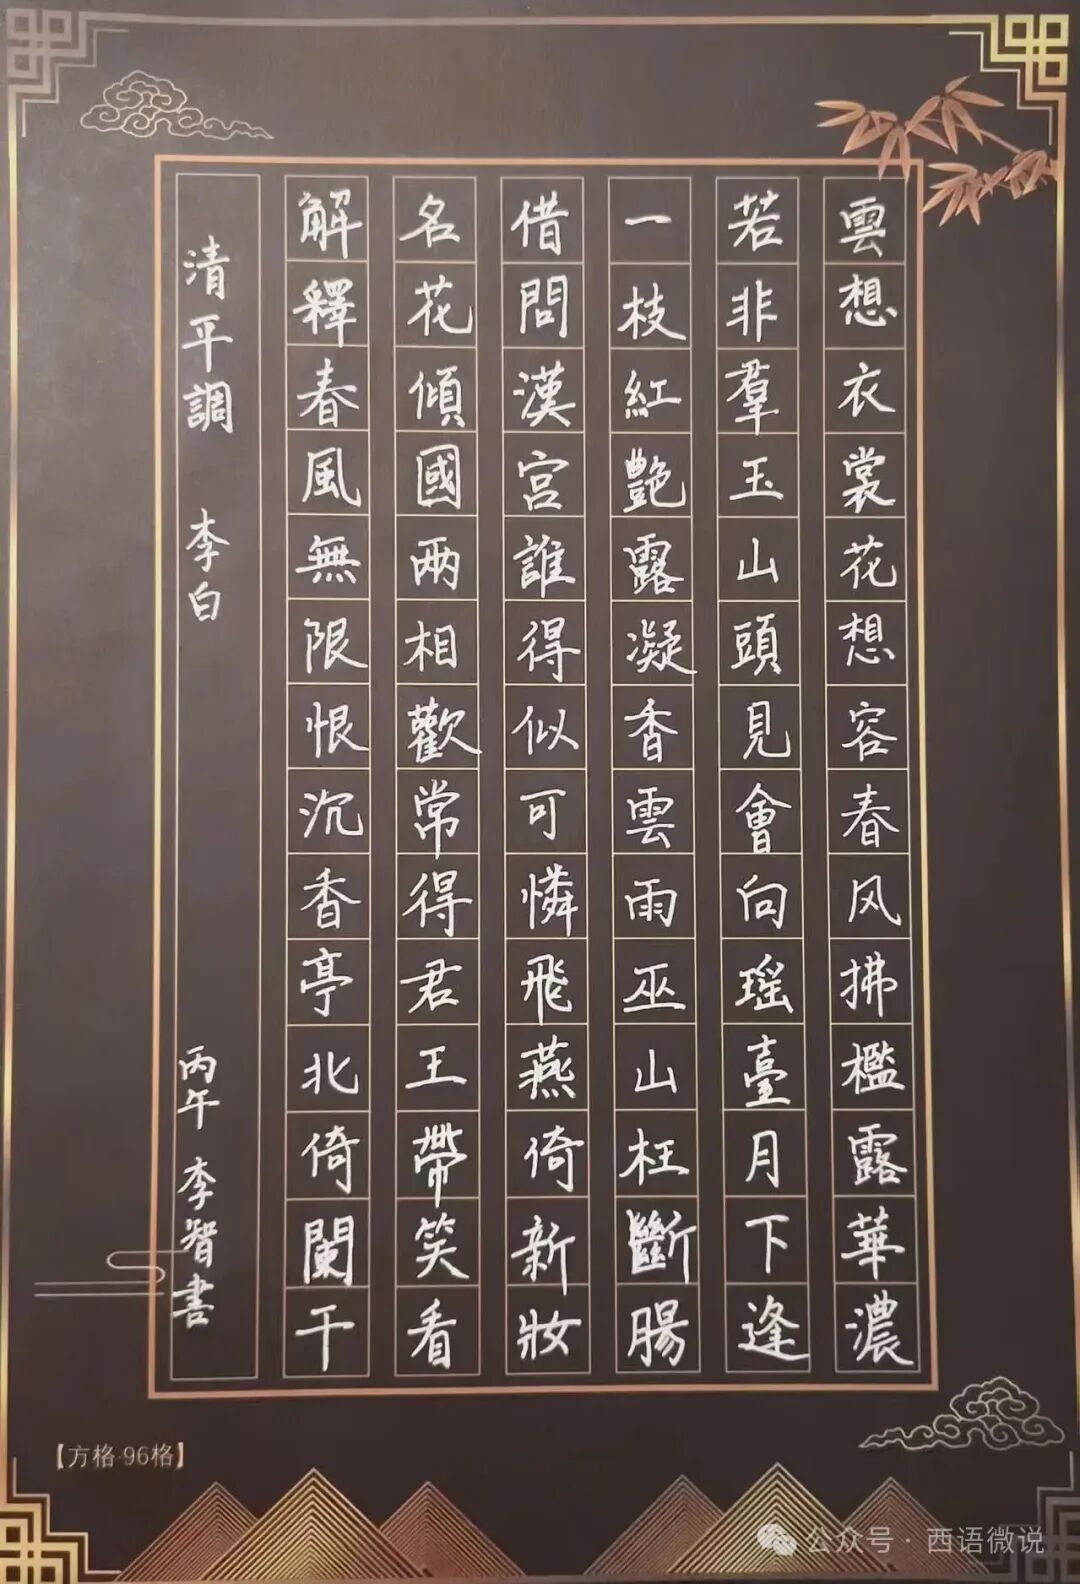 雲想衣裳花想容春风拂檻露華濃
若非羣玉山頭見會向瑶臺月下逢
一枝紅艷露凝香雲雨巫山枉斷腸
借問漢宫誰得似可憐飛燕倚新妝
名花傾國兩相歡常得君王帶笑看
解釋春風無限恨沉香亭北倚闌干
清平調 李白 丙午 李智書
【方格·96格】
公众号·西语微说